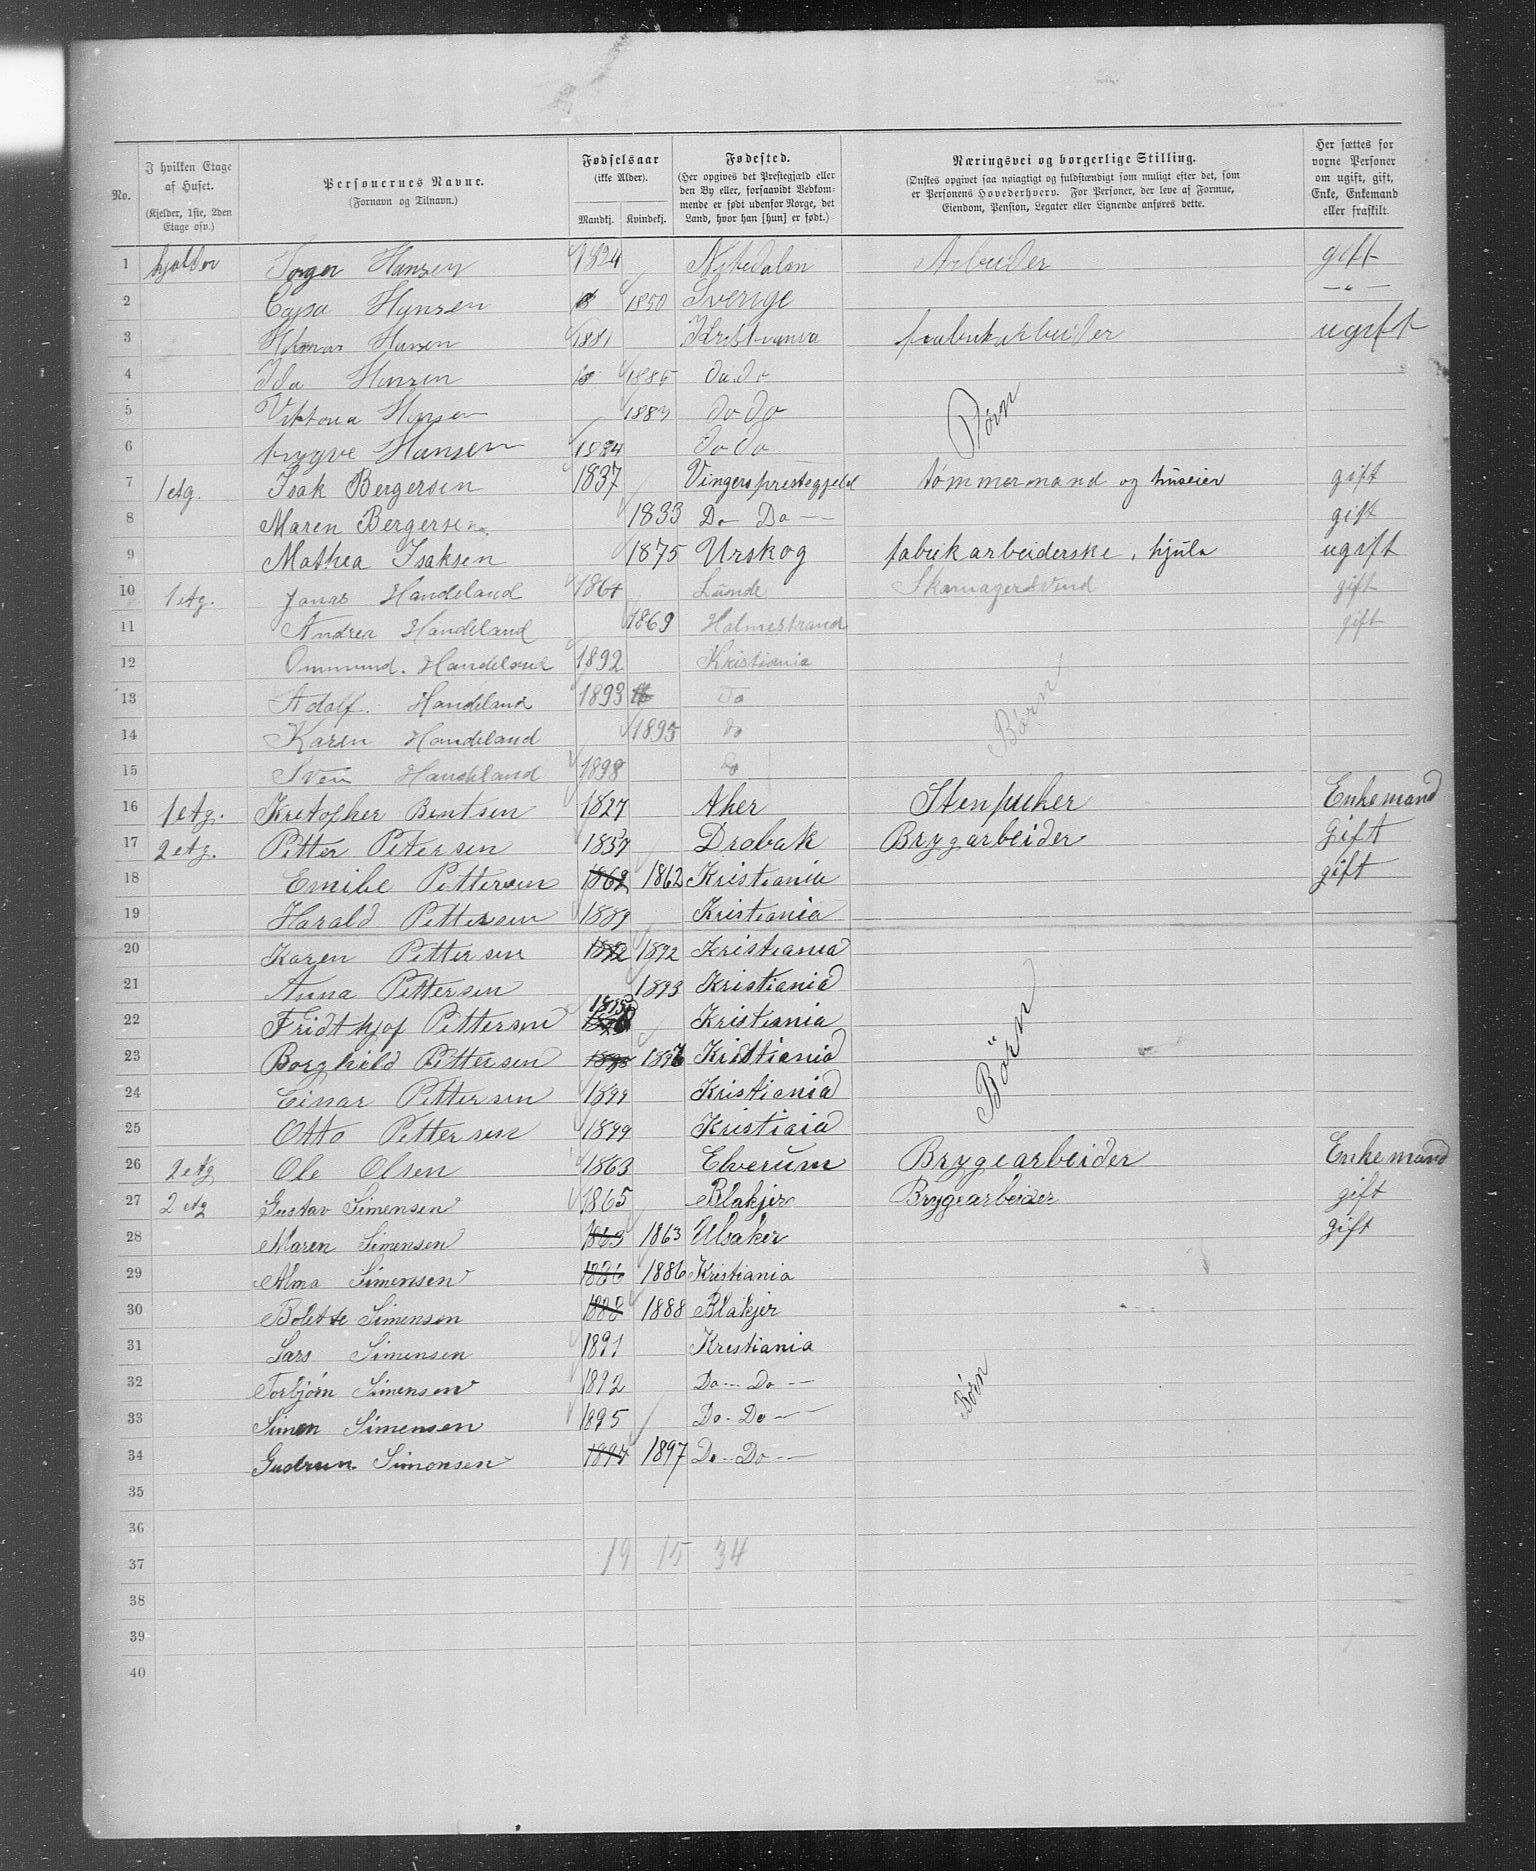 No. I hvilken Etage af Huset. (Kjelder, 1ste, 2den Etage osv.) Personernes Navne. (Fornavn og Tilnavn.) Fødselsaar (ikke Alder). Mandkj. Kvindekj. Fødested. (Her opgives det Prestegjæld eller den By eller, forsaavidt Vedkommende er født udenfor Norge, det Land, hvor han [hun] er født.) Næringsvei og borgerlige Stilling. (Ønskes opgivet saa nøiagtigt og fuldstændigt som muligt efter det, som er Personens Hovederhverv. For Personer, der leve af Formue, Eiendom, Pension, Legater eller Lignende anføres dette. Her sættes for vorne Personer om ugift, gift, Enke, Enkemand eller fraskilt.
1 kjelder Hansen 1824 Nitedalen Arbeider gift
2 Cajsa Hansen 1850 Sverige — " —
3 Hilmar Hansen 1881 Kristiania fabrikarbeider ugift
4 Ida Hansen 1885 do do
5 Viktoria Hansen do do Børn
6 trygve Hansen 1884 do do
7 1 etg. Isak Bergersen 1837 Vingers prestegjeld tømmermand og huseier gift
8 Maren Bergersen 1833 Do Do — gift
9 Mathea Isaksen 1875 Urskog fabrikarbeiderske, hjula ugift
10 1 etg. Jonas Handeland 1864 Lunde Skomagersvend gift
11 Andrea Handeland 1869 Holmestrand gift
12 Ommund. Handeland 1892 Kristiania
13 Adolf. Handeland 1893 Do
14 Karen Handeland 1895 do Børn
15 Sven Handeland 1898 do
16 1 etg. Kristofher Bentsen 1827 Aker Stenpukker Enkemand
17 2 etg. Petter Petersen 1837 Drøbak Brygarbeider gift
18 Emilie Pettersen 1862 1862 Kristiania gift
19 Harald Pettersen 1889 Kristiania
20 Karen Pettersen 1892 1892 Kristiania
21 Anna Pettersen 1893 Kristiania
22 Fridthjof Pettersen 1895 Kristiania
23 Borghild Pettersen 1897 Kristiania
24 Einar Pettersen 1899 Kristiania Børn
25 Otto Pettersen 1899 Kristiaia
26 2 etg Ole Olsen 1863 Elverum Brygearbeider Enkemand
27 2 etg Gustav Simensen 1865 Blakjer Brygearbeider gift
28 Maren Simensen 1863 1863 Ulsaker gift
29 Alma Simensen 1886 1886 Kristiania
30 Bolette Simensen 1888 1888 Blakjer
31 Lars Simensen 1891 Kristiania
32 Torbjørn Simensen 1892 Do — Do —
33 Simen Simensen 1895 Do . Do — Børn
34 Gudrun Simonsen 1897 1897 Do — Do —
35
36
37 19 15 34
38
39
40